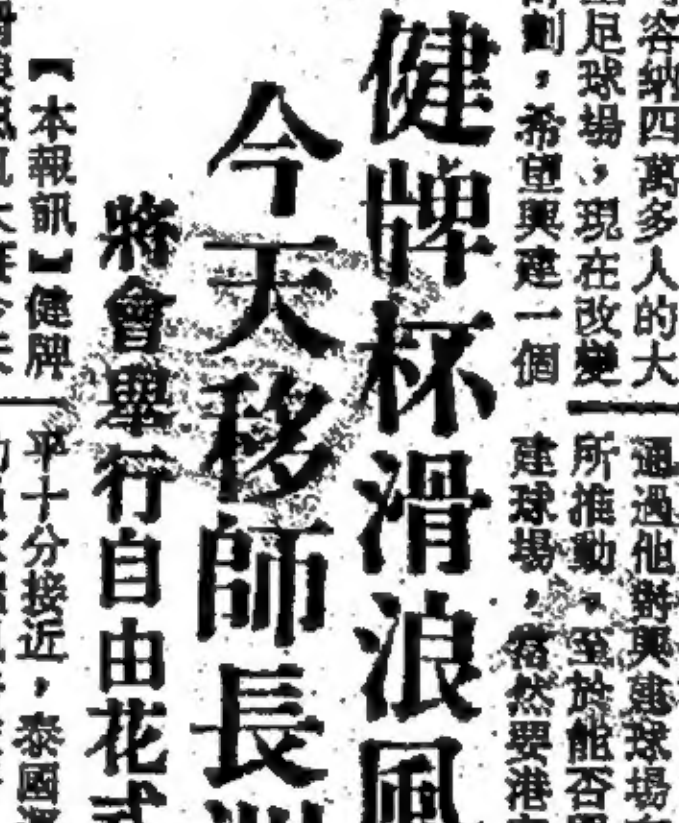 容納四萬多人的大
足球場，現在改變
劃，希望興建一個
通過他對興建球場
所推動，至於能否
建球場，當然要港
健牌杯滑浪風
今天移師長
將會舉行自由花式
【本報訊】健牌
平十分接近，泰國